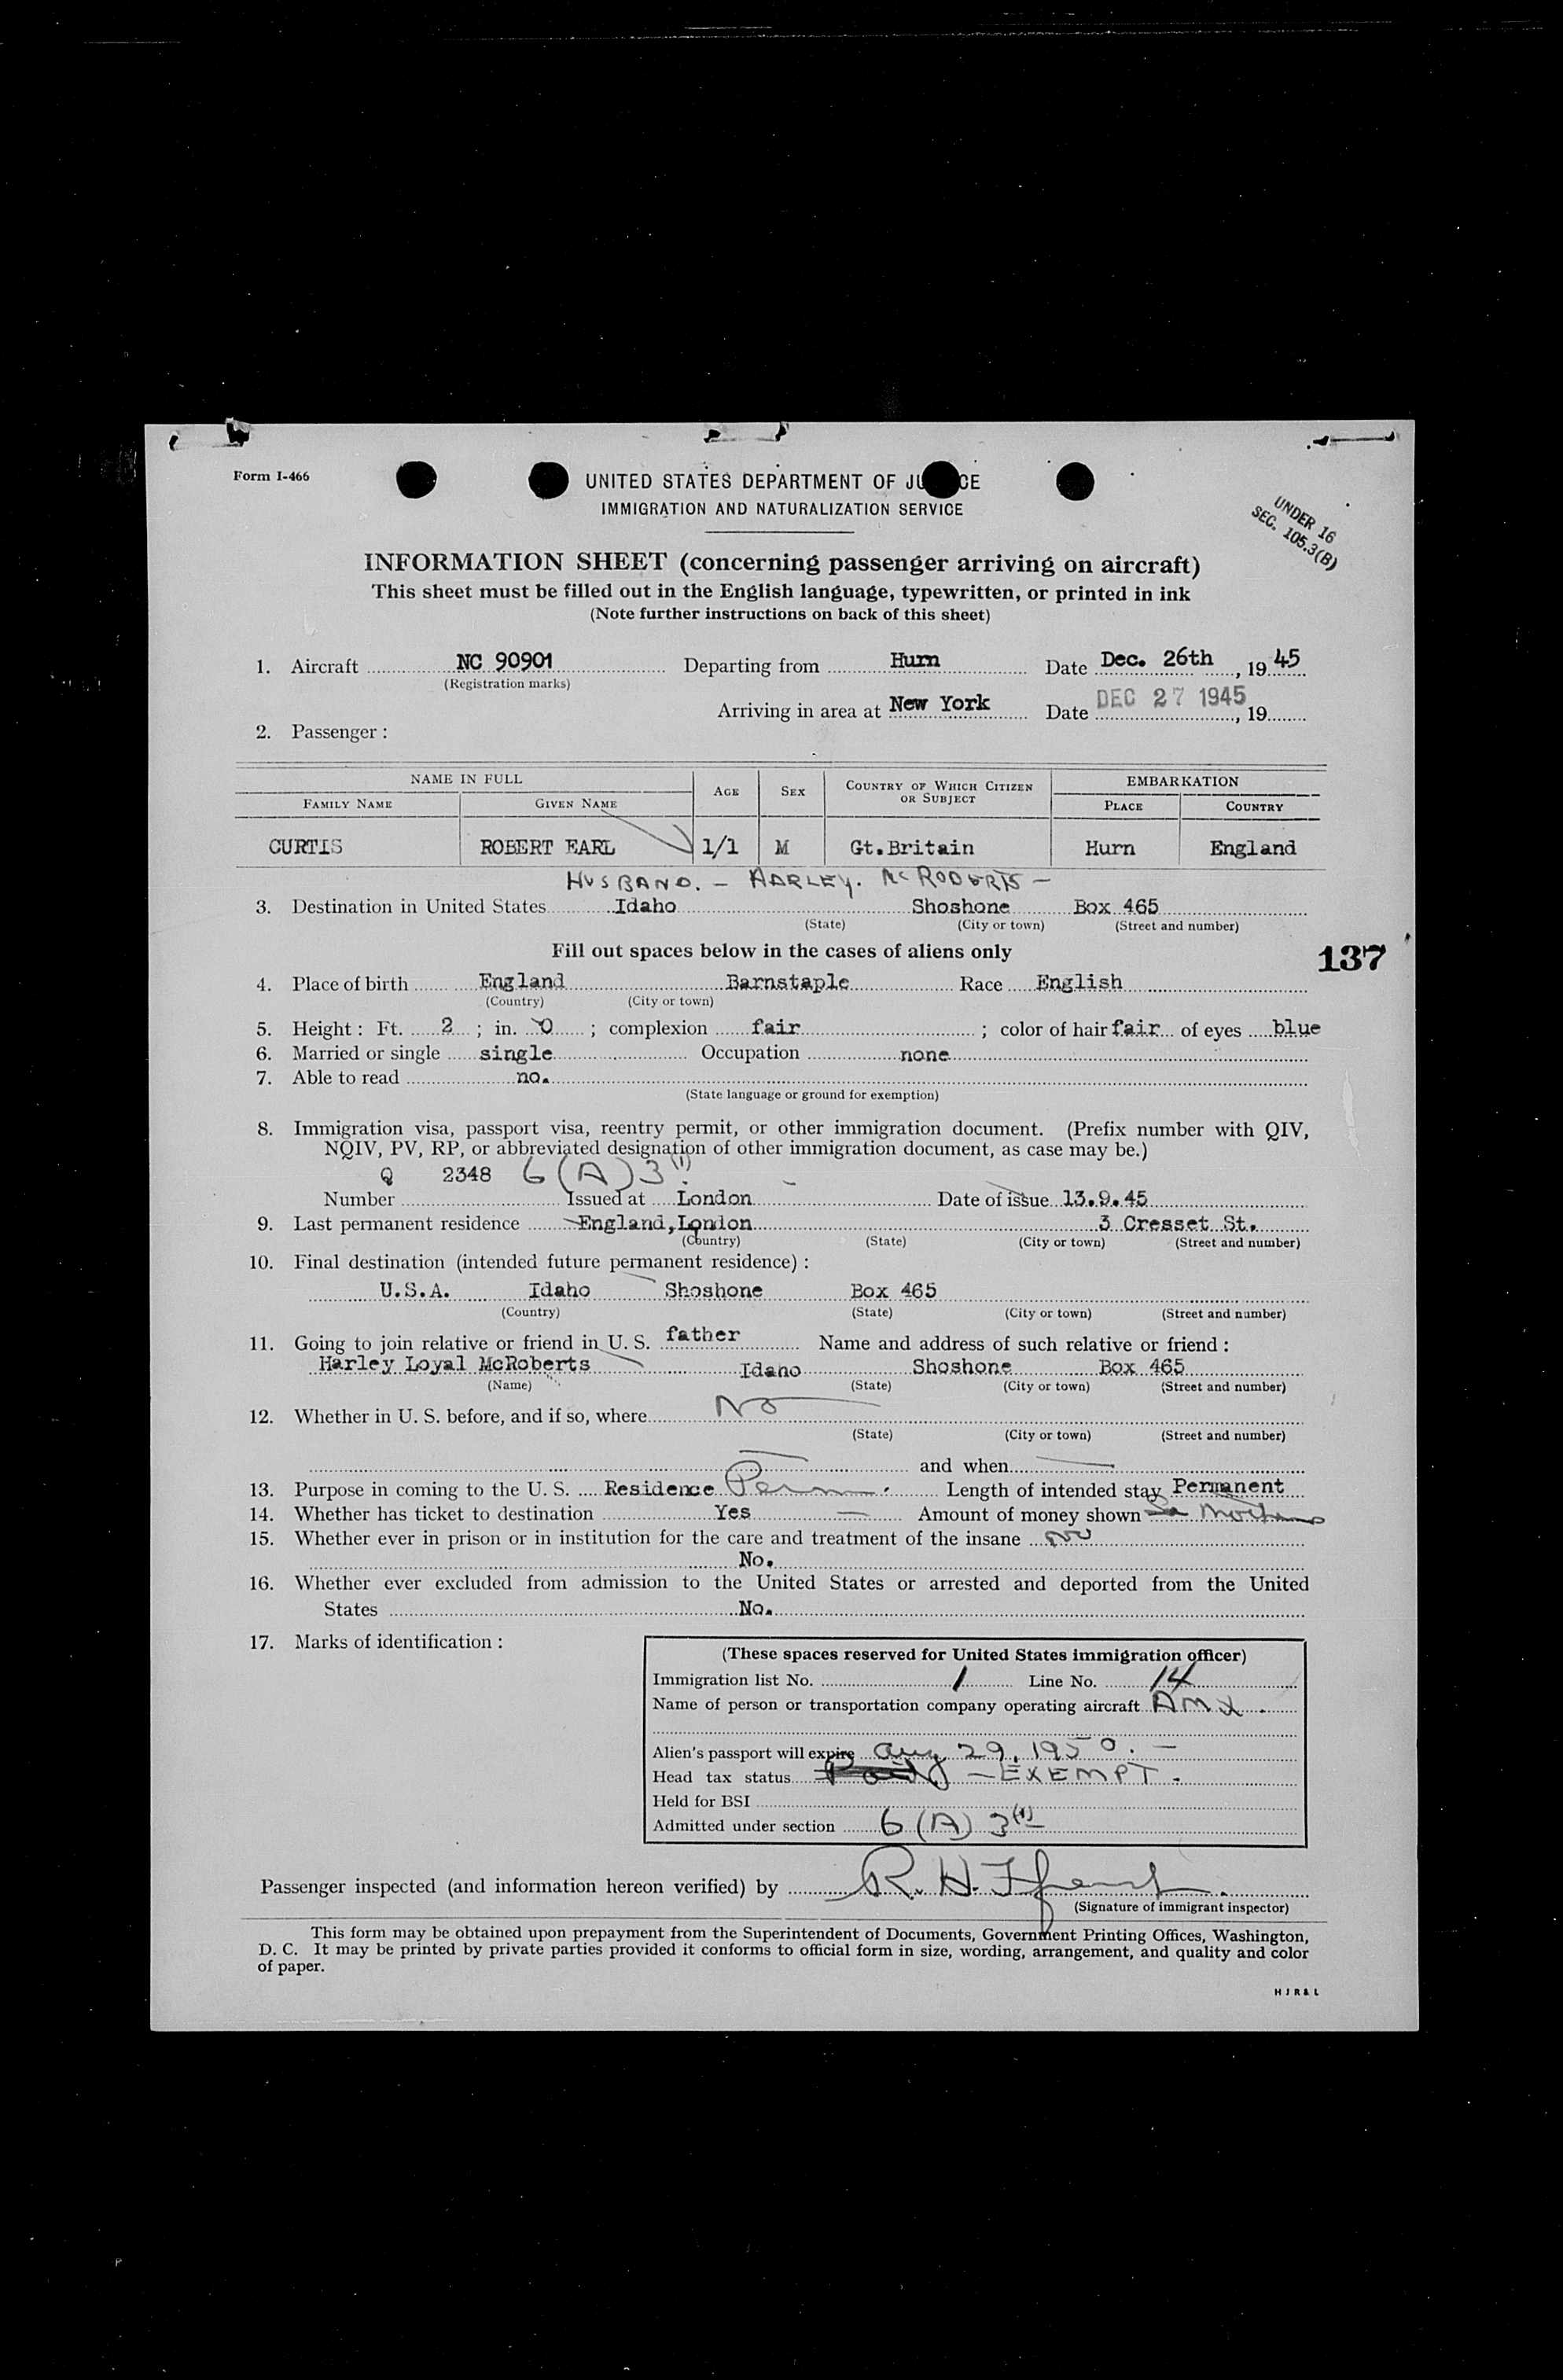 Form I-466
UNITED STATES DEPARTMENT OF JU CE
IMMIGRATION AND NATURALIZATION SERVICE
UNDER 16
SEC. 105.3(B)
INFORMATION SHEET (concerning passenger arriving on aircraft)
This sheet must be filled out in the English language, typewritten, or printed in ink
(Note further instructions on back of this sheet)
1. Aircraft NC 90901 Departing from Hurn Date Dec. 26th, 1945
(Registration marks)
Arriving in area at New York Date DEC 27 1945, 19
2. Passenger:
NAME IN FULL AGE SEX COUNTRY OF WHICH CITIZEN OR SUBJECT EMBARKATION
FAMILY NAME GIVEN NAME PLACE COUNTRY
CURTIS ROBERT EARL 1/1 M Gt.Britain Hurn England
HUSBAND. - HARLEY. McROBERTS -
3. Destination in United States Idaho Shoshone Box 465
(State) (City or town) (Street and number)
Fill out spaces below in the cases of aliens only
137
4. Place of birth England Barnstaple Race English
(Country) (City or town)
5. Height: Ft. 2; in. 0; complexion fair; color of hair fair of eyes blue
6. Married or single single Occupation none
7. Able to read no.
(State language or ground for exemption)
8. Immigration visa, passport visa, reentry permit, or other immigration document. (Prefix number with QIV,
NQIV, PV, RP, or abbreviated designation of other immigration document, as case may be.)
Q 2348 6(A)3(1)
Number Issued at London Date of issue 13.9.45
9. Last permanent residence England, London 3 Cresset St.
(Country) (State) (City or town) (Street and number)
10. Final destination (intended future permanent residence):
U.S.A. Idaho Shoshone Box 465
(Country) (State) (City or town) (Street and number)
11. Going to join relative or friend in U. S. father Name and address of such relative or friend:
Harley Loyal McRoberts Idaho Shoshone Box 465
(Name) (State) (City or town) (Street and number)
12. Whether in U. S. before, and if so, where No
(State) (City or town) (Street and number)
and when
13. Purpose in coming to the U. S. Residence Perm. Length of intended stay Permanent
14. Whether has ticket to destination Yes Amount of money shown
15. Whether ever in prison or in institution for the care and treatment of the insane no
No.
16. Whether ever excluded from admission to the United States or arrested and deported from the United
States No.
17. Marks of identification:
(These spaces reserved for United States immigration officer)
Immigration list No. 1 Line No. 14
Name of person or transportation company operating aircraft AMX.
Alien's passport will expire Aug 29, 1950. -
Head tax status - EXEMPT.
Held for BSI
Admitted under section 6(A)3(1)
Passenger inspected (and information hereon verified) by R. H.
(Signature of immigrant inspector)
This form may be obtained upon prepayment from the Superintendent of Documents, Government Printing Offices, Washington,
D. C. It may be printed by private parties provided it conforms to official form in size, wording, arrangement, and quality and color
of paper.
H J R & L